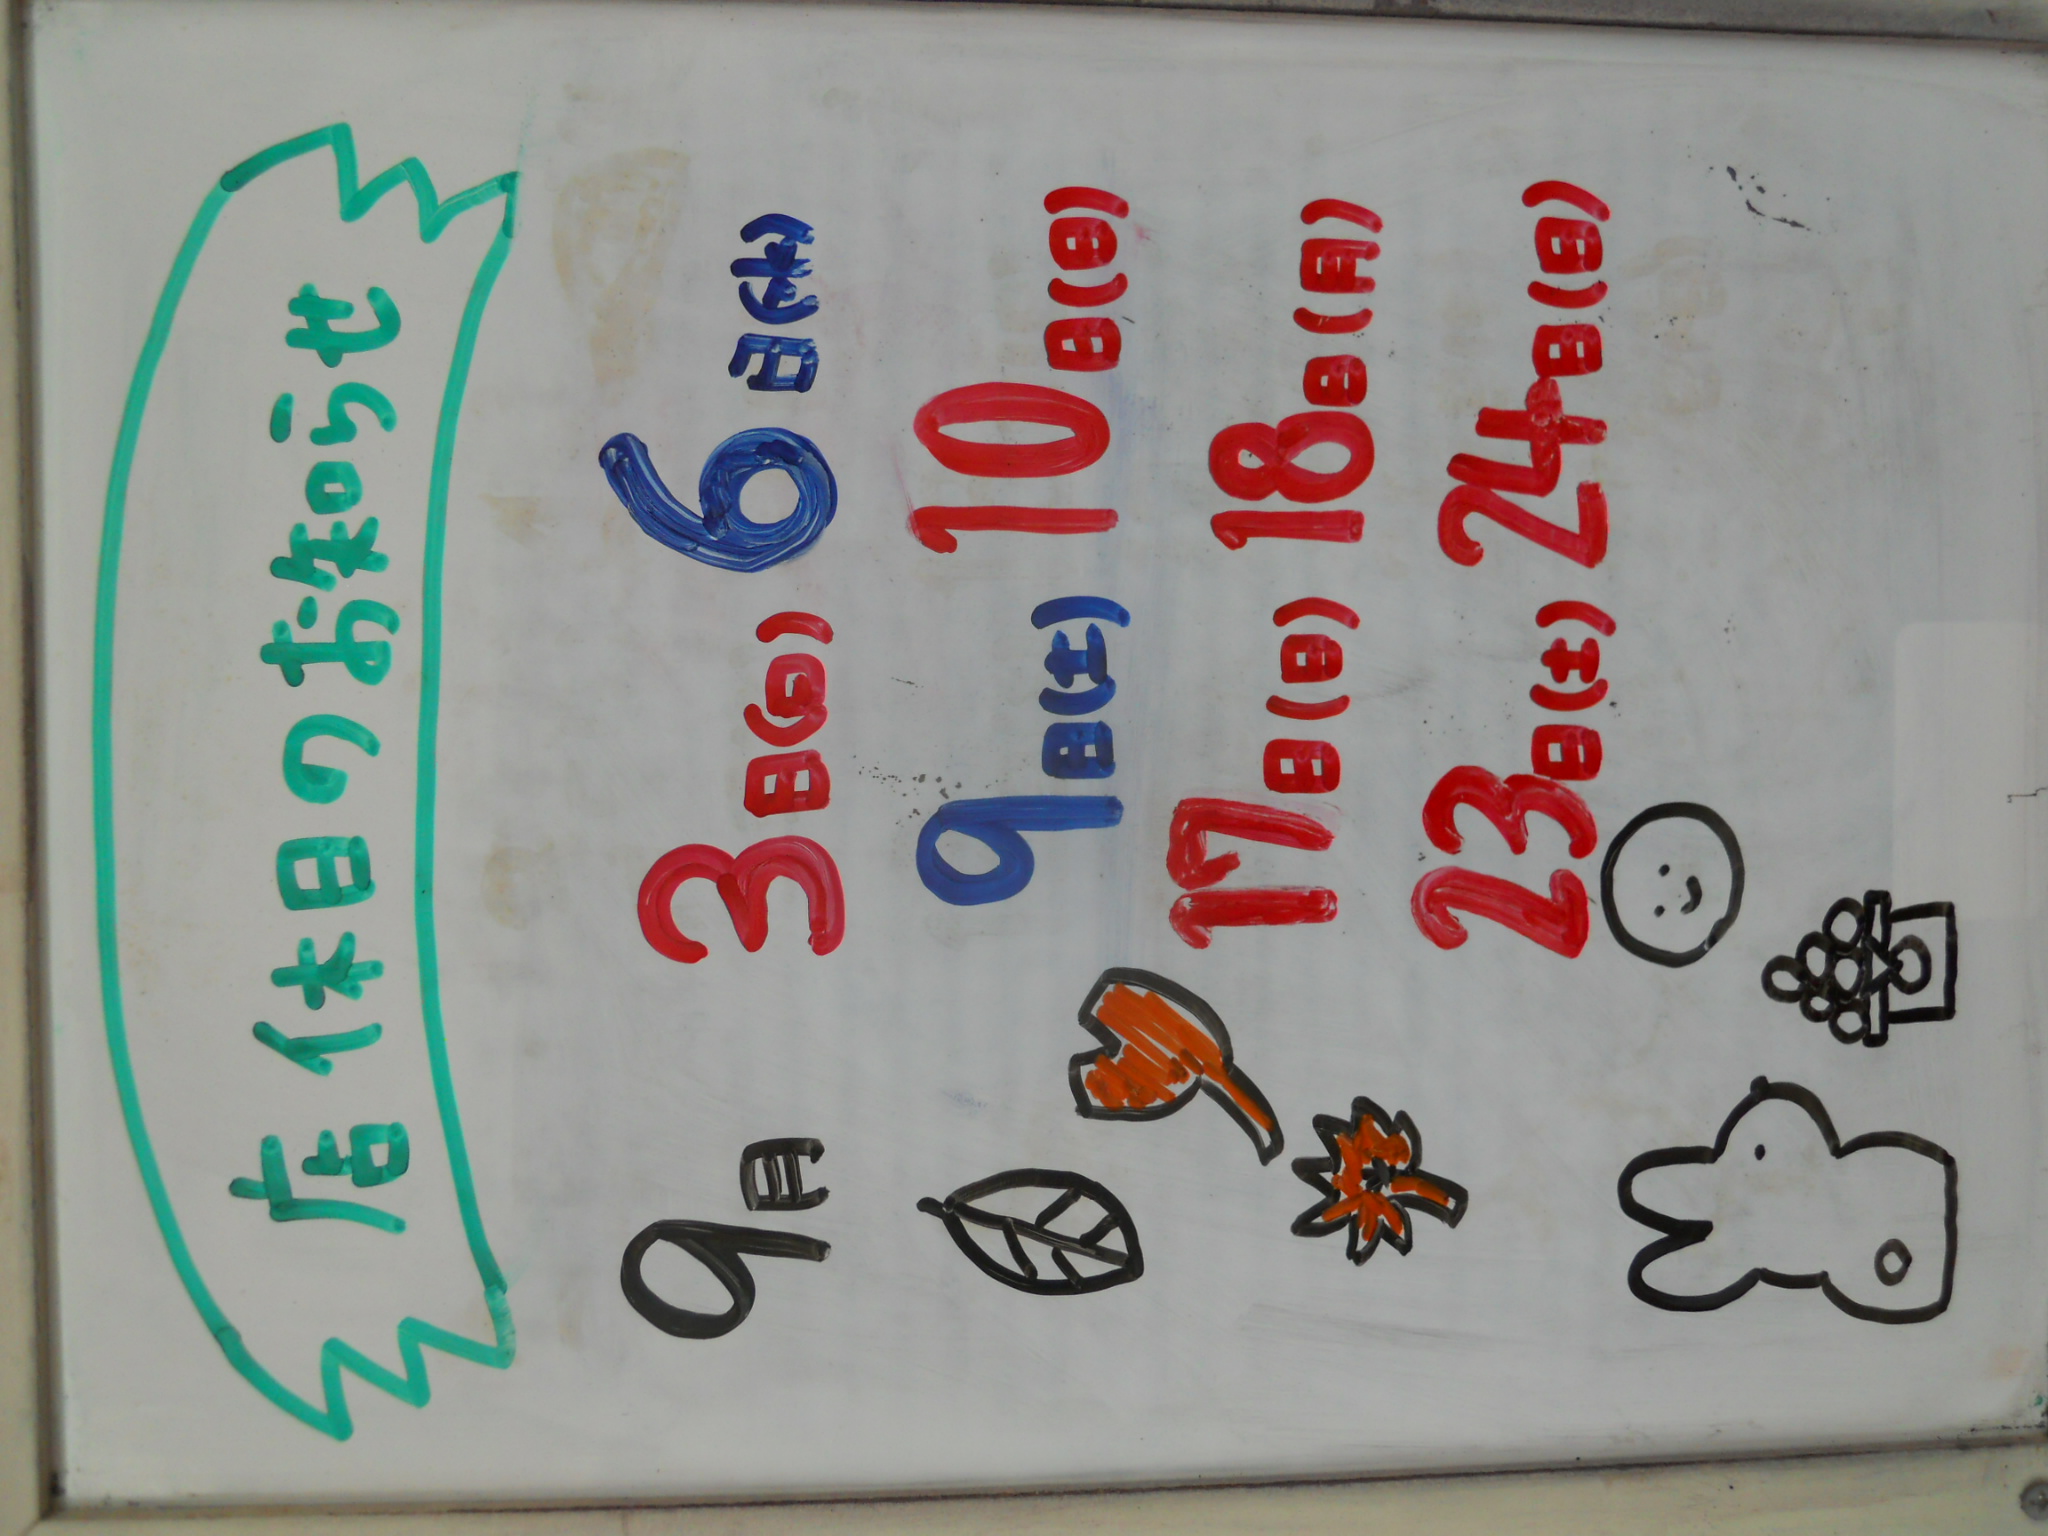 店休日のお知らせ
9月 3日(日) 6日(水)
9日(土) 10日(日)
17日(日) 18日(月)
23日(土) 24日(日)